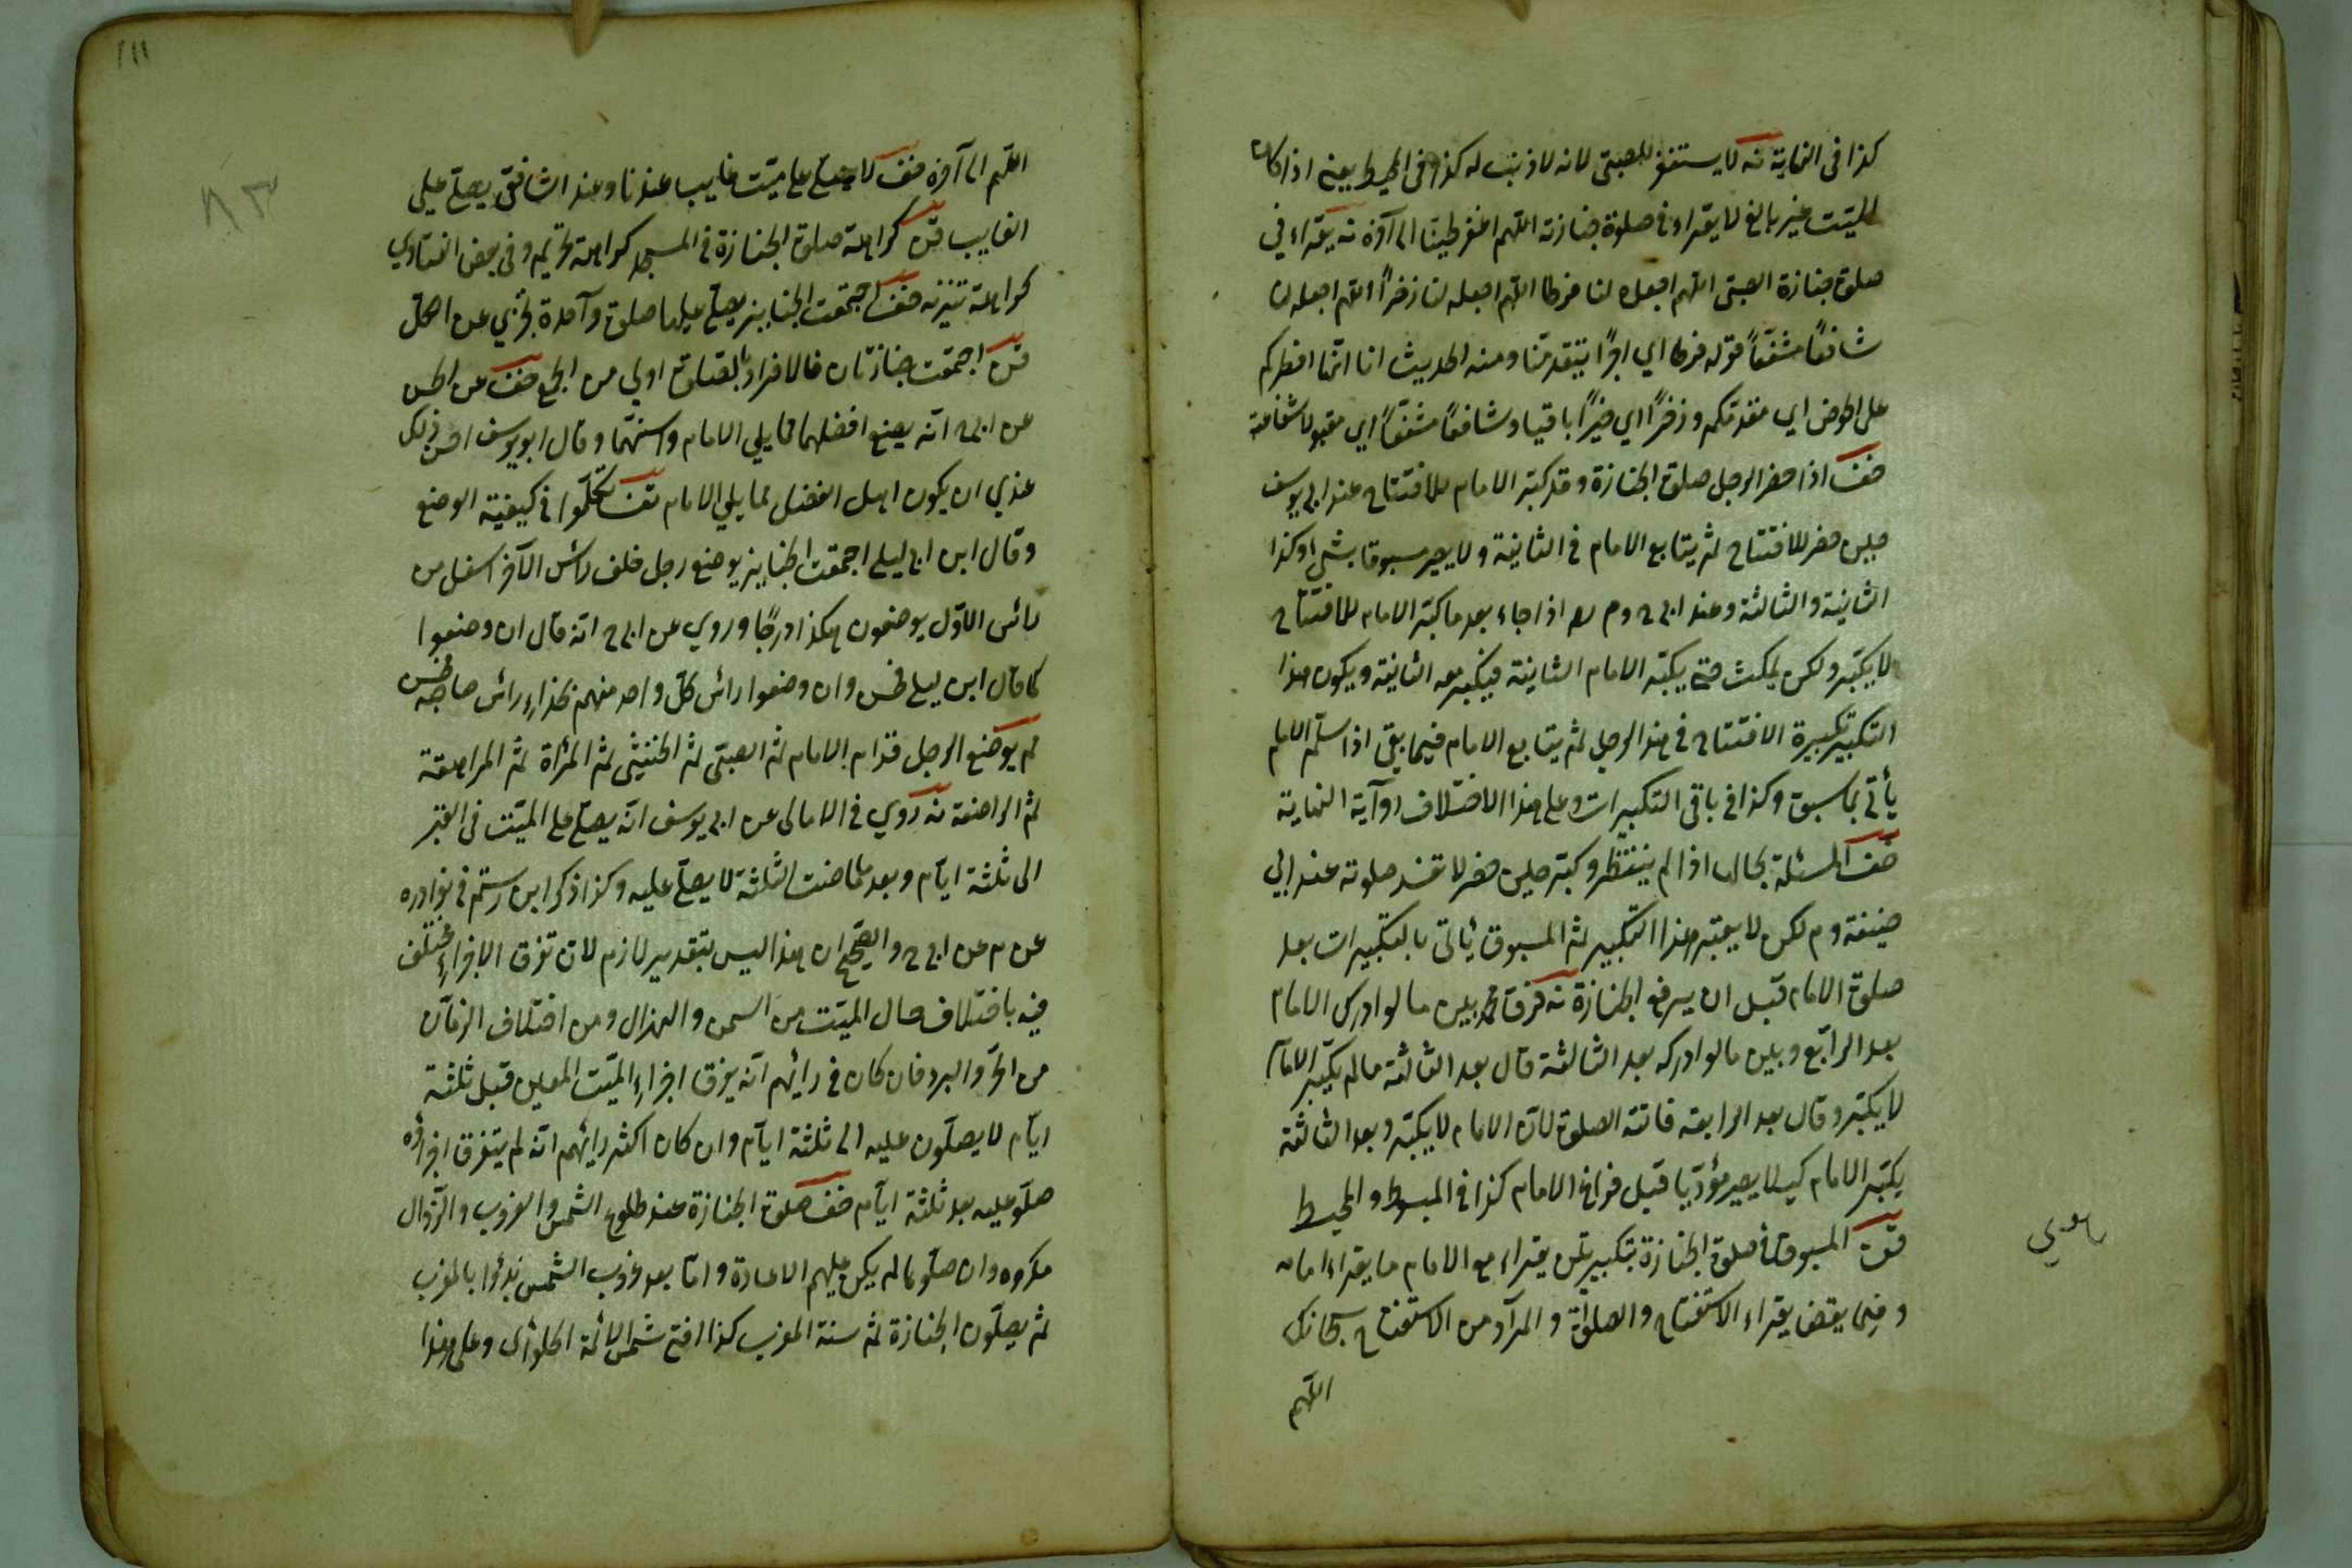 كذا في النهاية نه لا يستغفر للصبي لانه لا ذنب له كذا في المحيط يعني اذا كان
الميت غير بالغ لا يقراء في صلوة جنازته اللهم اغفر لحينا الى آخره نه يقراء في
صلوة جنازة الصبي اللهم اجعله لنا فرطا اللهم اجعله لنا ذخراً اللهم اجعله لنا
شافعاً مشفعاً قوله فرطا اي اجراً يتقدمنا ومنه الحديث انا افرطكم
على الحوض اي مقدمكم وذخراً اي خيراً باقيا وشافعاً مشفعاً اي مقبولا شفاعته
خف اذا حضر الرجل صلوة الجنازة وقد كبر الامام للافتتاح عند ابي يوسف
حين حضر للافتتاح ثم يتابع الامام في الثانية ولا يصير مسبوقا بشي وكذا
الثانية والثالثة وعند ابي ح وم رحه اذا جاء بعد ما كبر الامام للافتتاح
لا يكبر ولكن يمكث حتى يكبر الامام الثانية فيكبر معه الثانية ويكون هذا
التكبير تكبيرة الافتتاح في هذا الرجل ثم يتابع الامام فيما بقي اذا سلم الامام
يأتي بما سبق وكذا في باقي التكبيرات وعلى هذا الاختلاف النهاية
خف المسئلة بحالها اذا لم ينتظر وكبر حين حضر لا تفسد صلوته عند ابي
حنيفة وم لكن لا يعتبر هذا التكبير ثم المسبوق يأتي بالتكبيرات بعد
صلوة الامام قبل ان يرفع الجنازة نه فرق محمد بين ما لو ادرك الامام
بعد الرابع وبين ما لو ادركه بعد الثالثة قال بعد الثالثة ما لم يكبر الامام
لا يكبر وقال بعد الرابعة فاتته الصلوة لان الامام لا يكبر وبعد الثالثة
يكبر الامام كيلا يصير مؤديا قبل فراغ الامام كذا في المبسوط والمحيط
المسبوق في صلوة الجنازة بتكبيرتين يقراء مع الامام ما يقراء امامه
وفيما يقضي يقراء الاستفتاح والصلوة والمراد من الاستفتاح سبحانك
اللهم
اللهم الى آخره خف لا يصلي على ميت غايب عندنا وعند الشافعي يصلي على
الغايب كراهة صلوة الجنازة في المسجد كراهة تحريم وفي بعض الفتاوي
كراهة تنزيه خف اجتمعت الجنايز يصلي عليها صلوة واحدة تجزي عن الكل
اجتمعت جنازتان فالافراد بالصلوة اولى من الجمع خف عن الحسن
عن ابي ح انه يضع افضلهما مما يلي الامام واسنهما وقال ابو يوسف احسن ذلك
عندي ان يكون اهل الفضل مما يلي الامام تكلموا في كيفية الوضع
وقال ابن ابي ليلى اجتمعت الجنايز يوضع رجل خلف رأس الآخر اسفل من
رائس الاول يوضعون هكذا درجاً وروي عن ابي ح انه قال ان وضعوا
كما قال ابن ليلى فحسن وان وضعوا رائس كل واحد منهم بحذاء رائس صاحبه فحسن
ثم يوضع الرجل قدام الامام ثم الصبي ثم الخنثى ثم المرأة ثم المراهقة
ثم الراضعة نه روي في الامالي عن ابي يوسف انه يصلي على الميت في القبر
الى ثلثة ايام وبعد ما مضت الثلثة لا يصلي عليه وكذا ذكر ابن رستم في نوادره
عن م عن ابي ح والصحيح ان هذا ليس بتقدير لازم لان تفرق الاجزاء يختلف
فيه باختلاف حال الميت من السمن والهزال ومن اختلاف الزمان
من الحر والبرد فان كان في رائيهم انه يفرق اجزاء الميت المعين قبل ثلثة
ايام لا يصلون عليه الى ثلثة ايام وان كان اكثر رائيهم انه لم يتفرق اجزاؤه
صلو عليه بعد ثلثة ايام خف صلوة الجنازة عند طلوع الشمس والغروب والزوال
مكروه وان صلوها لم يكن عليهم الاعادة واما بعد غروب الشمس بدئوا بالمغرب
ثم يصلون الجنازة ثم سنة المغرب كذا افتى شمس الائمة الحلواني وعلى هذا
٨٣